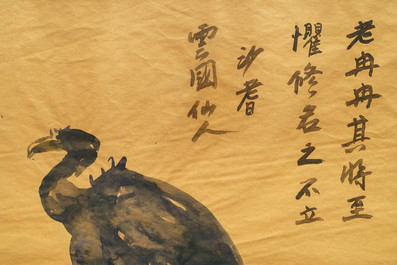 老冉冉其將至
懼修名之不立
沙耆
雲國仙人